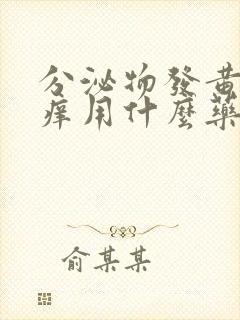 分泌物發黃
痒用什麼藥
俞某某